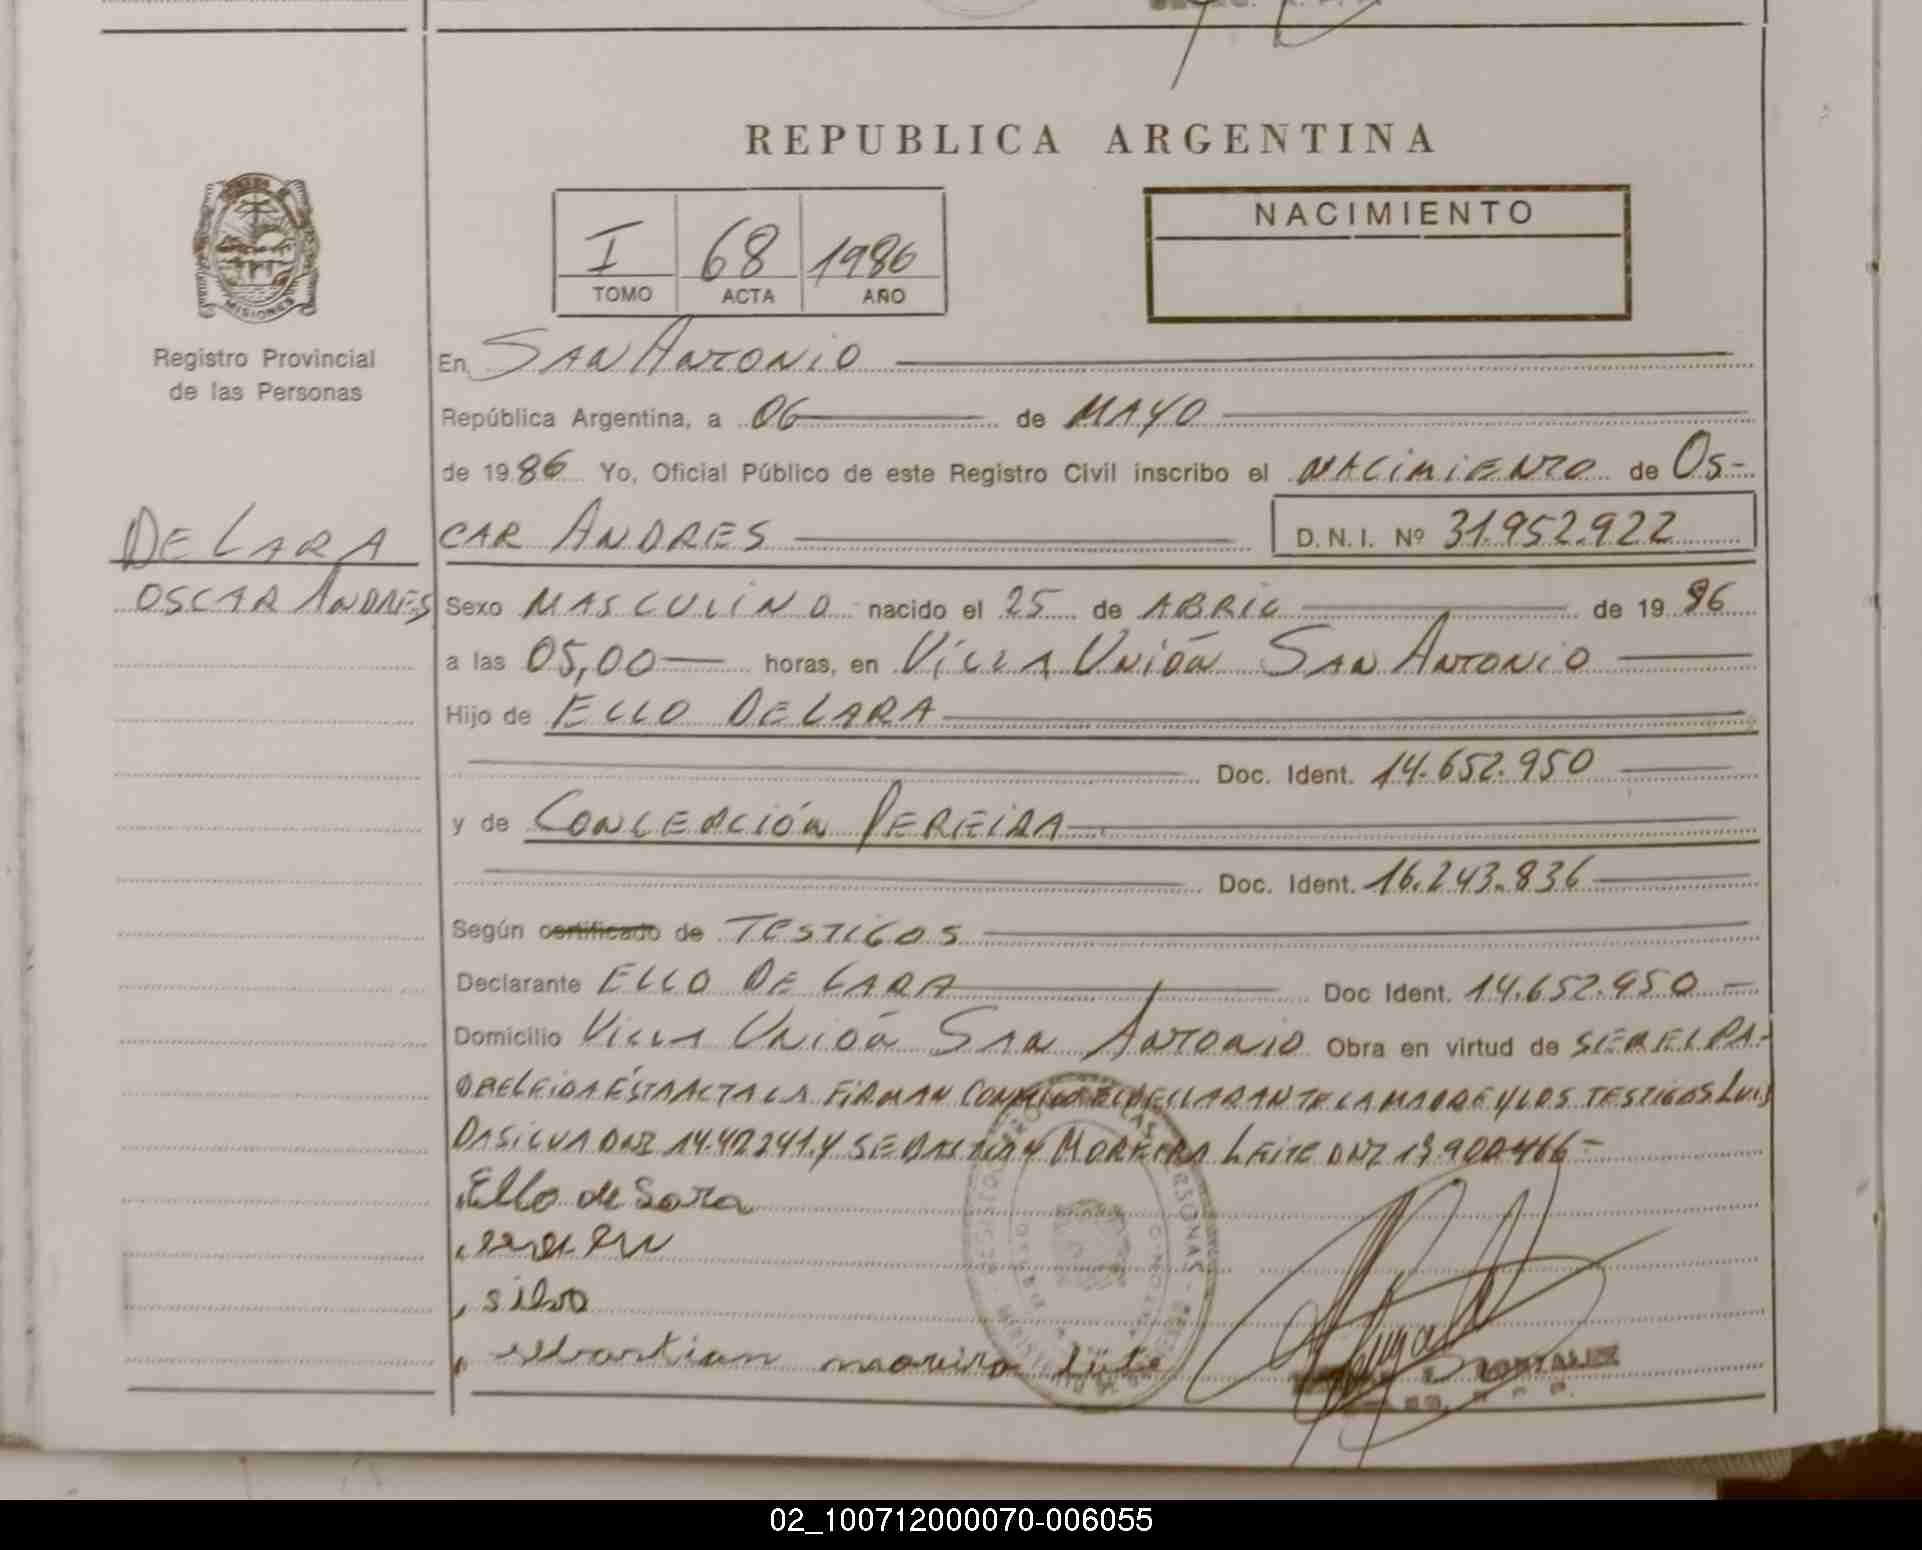 REPUBLICA ARGENTINA
I 68 1986
TOMO ACTA AÑO
NACIMIENTO
MISIONES
Registro Provincial
de las Personas
En SAN ANTONIO
República Argentina, a 06 de MAYO
de 1986 Yo, Oficial Público de este Registro Civil inscribo el NACIMIENTO de OS-
DE LARA
CAR ANDRES D.N.I. Nº 31.952.922
OSCAR ANDRES
Sexo MASCULINO nacido el 25 de ABRIL de 1986
a las 05,00 horas, en VILLA UNIÓN SAN ANTONIO
Hijo de ELLO DE LARA
Doc. Ident. 14.652.950
y de CONCEPCIÓN PEREIRA
Doc. Ident. 16.243.836
Según certificado de TESTIGOS
Declarante ELLO DE LARA Doc Ident. 14.652.950
Domicilio VILLA UNIÓN SAN ANTONIO Obra en virtud de SER EL PA-
DRE LEIDA ÉSTA ACTA LA FIRMAN CONMIGO EL DECLARANTE LA MADRE Y LOS TESTIGOS LUIS
DASILVA DNI Y SEBASTIAN MOREIRA LEITE DNI
Ello de Sara
silva
sebastian moreira leite
02_100712000070-006055